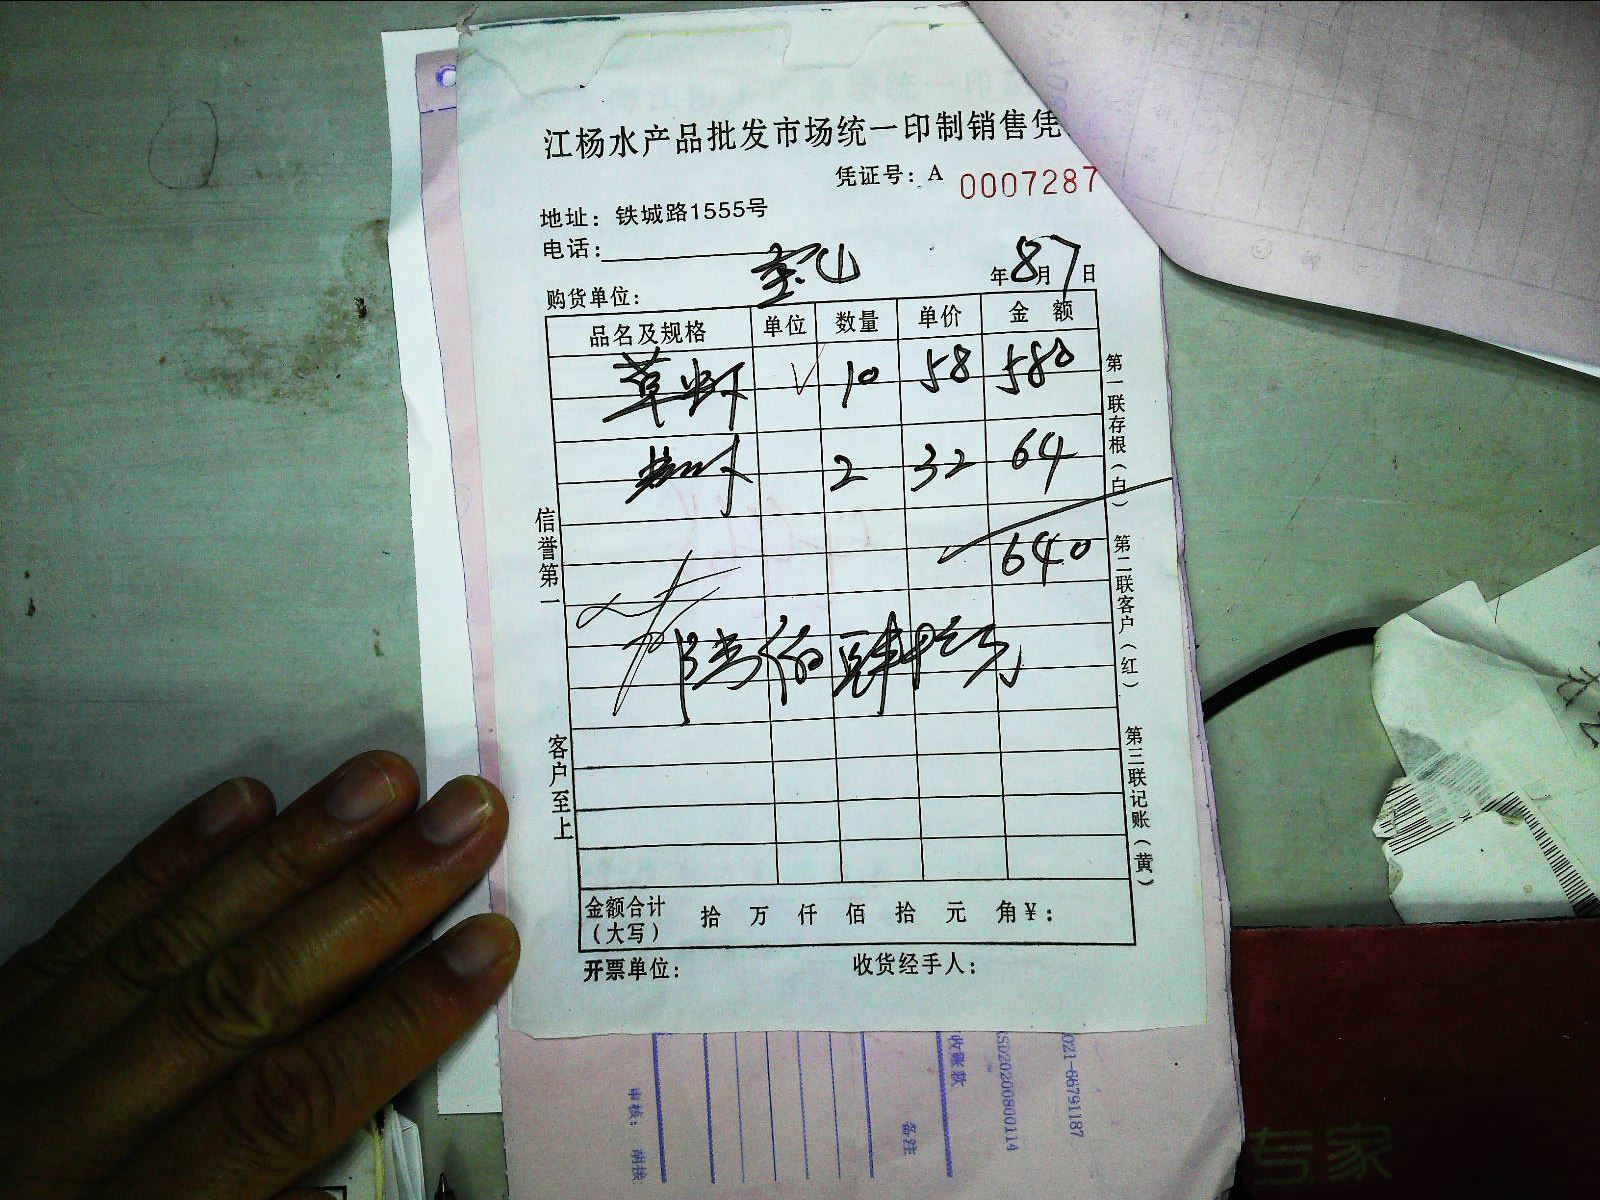 江杨水产品批发市场统一印制销售凭
凭证号：A 0007287
地址：铁城路1555号
电话：
购货单位：
年8月7日
品名及规格 单位 数量 单价 金 额
草虾 10 58 580
2 32 64
640
陆佰肆拾元
金额合计（大写） 拾 万 仟 佰 拾 元 角 ¥：
开票单位： 收货经手人：
信誉第一
客户至上
第一联存根（白）
第二联客户（红）
第三联记账（黄）
收账款
备注
审核：
021-66791187
专家